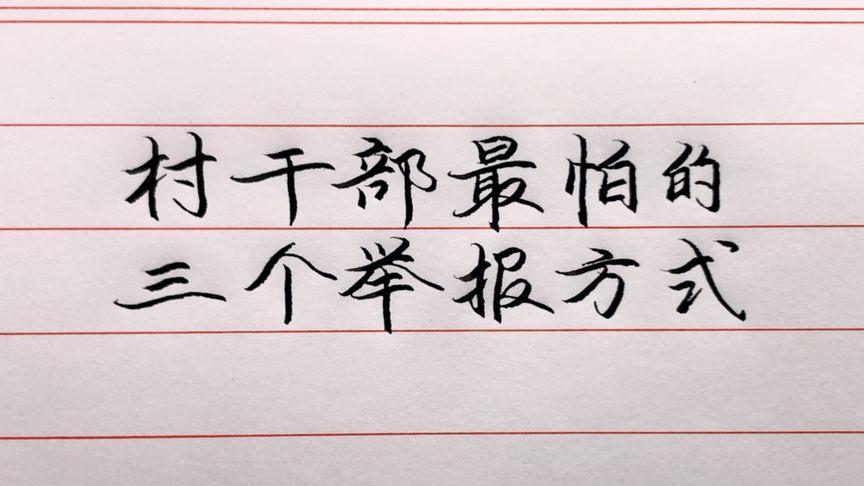 村干部最怕的
三个举报方式